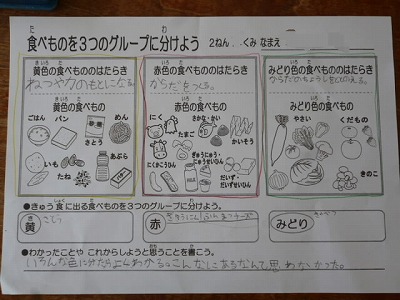 食べものを３つのグループに分けよう 2ねん . . くみ なまえ
黄色の食べもののはたらき
ねつや力のもとになる。
黄色の食べもの
ごはん パン さとう めん
いも たね あぶら
赤色の食べもののはたらき
からだをつくる。
赤色の食べもの
にく たまご さかな・かい かいそう
にくかこうひん ぎゅうにゅう・にゅうせいひん だいず・だいずせいひん
みどり色の食べもののはたらき
からだのちょうしをととのえる。
みどり色の食べもの
やさい くだもの
きのこ
●きゅう食に出る食べものを３つのグループに分けよう。
黄 さとう
赤 ぎゅうにゅう チーズ
みどり
●わかったことや これからしようと思うことを書こう。
いろんな色に分けたらよくわかる。こんなにあるなんて思わなかった。